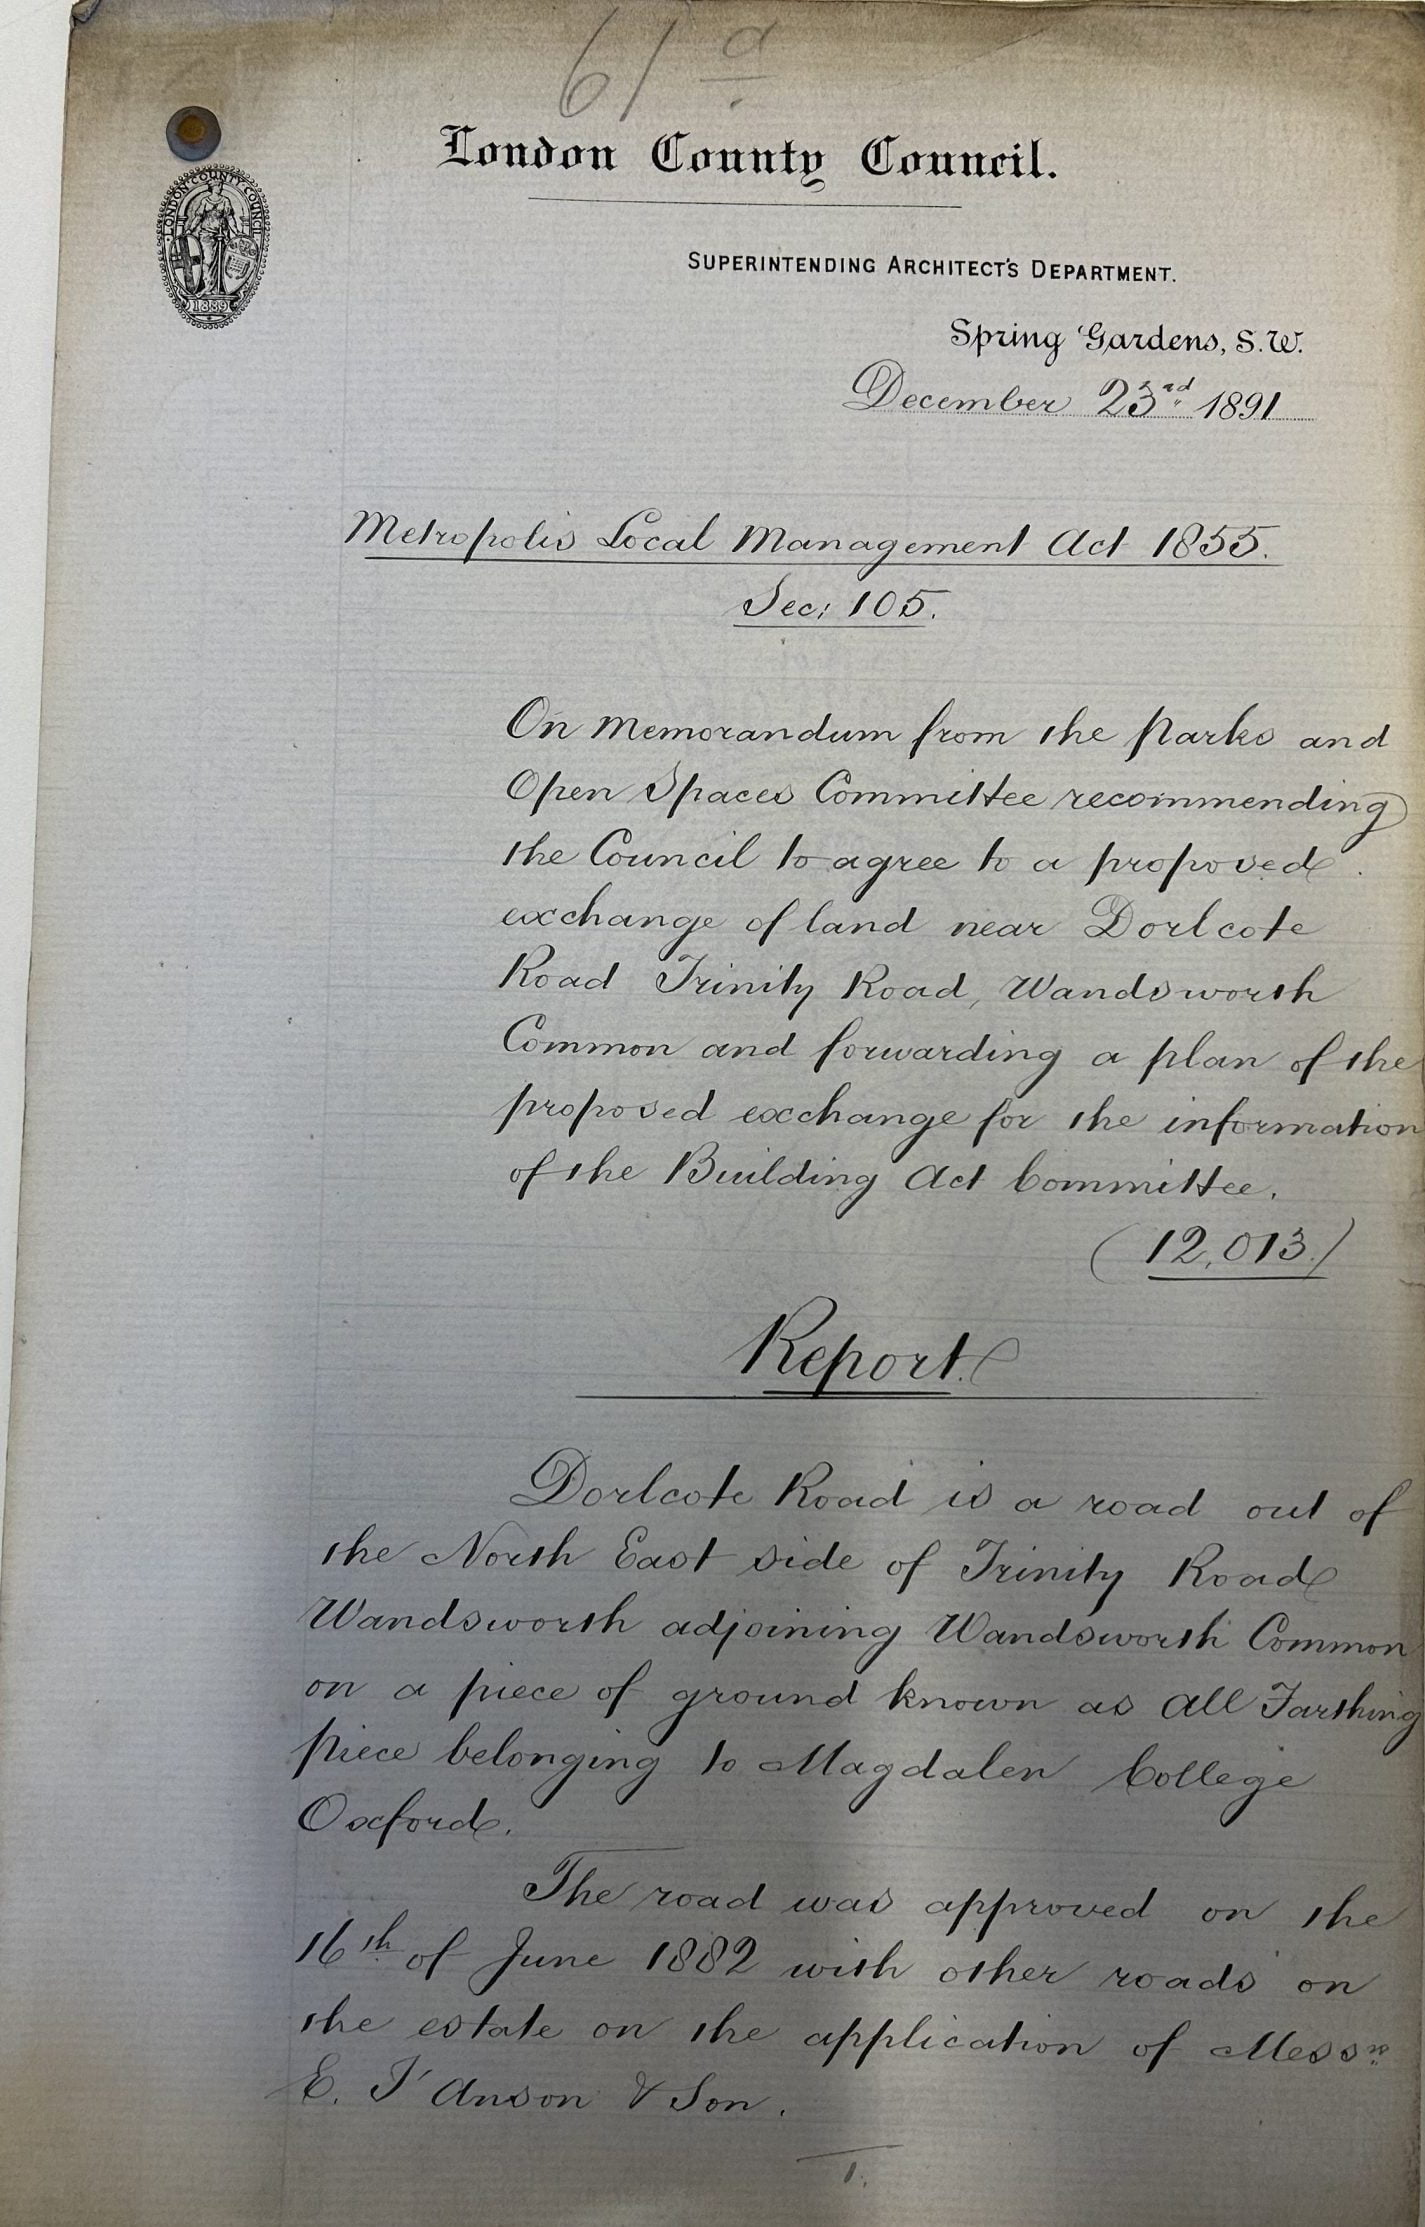 61 a
London County Council.
LONDON COUNTY COUNCIL
1889
SUPERINTENDING ARCHITECT'S DEPARTMENT.
Spring Gardens, S.W.
December 23rd 1891
Metropolis Local Management Act 1855.
Sec: 105.
On memorandum from the Parks and
Open Spaces Committee recommending
the Council to agree to a proposed
exchange of land near Dorlcote
Road Trinity Road, Wandsworth
Common and forwarding a plan of the
proposed exchange for the information
of the Building Act Committee.
(12,013.)
Report.
Dorlcote Road is a road out of
the North East side of Trinity Road
Wandsworth adjoining Wandsworth Common
on a piece of ground known as All Farthing
piece belonging to Magdalen College
Oxford.
The road was approved on the
16th of June 1882 with other roads on
the estate on the application of Messrs
E. I'Anson & Son.
1.